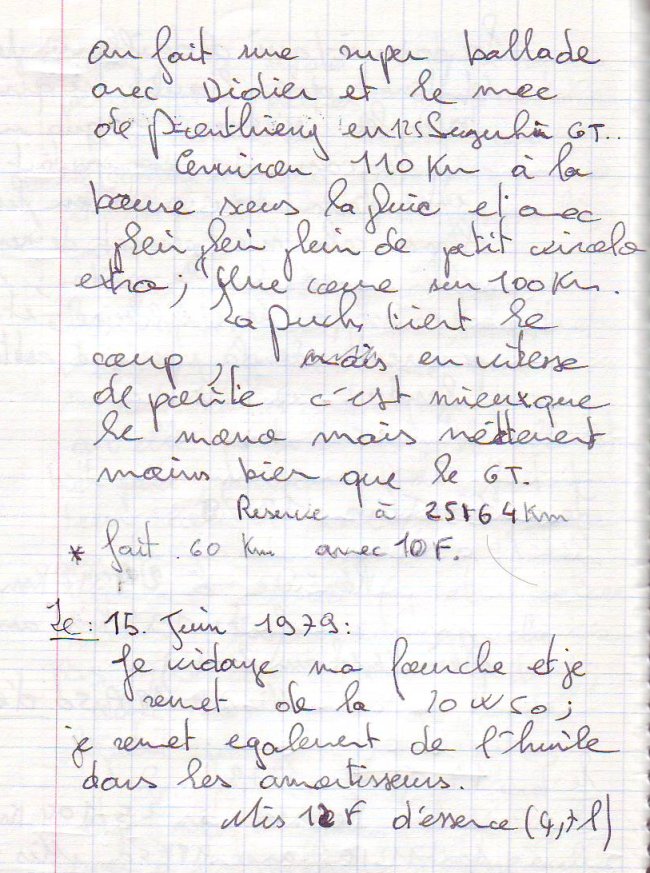 on fait une super ballade
avec Didier et le mec
de en 125 Suzuki GT..
environ 110 Km à la
bourre sous la pluie et avec
plein plein plein de petit virolo
extra; Une course sur 100 Km.
La Puch tient le
coup, mais en vitesse
de pointe c'est mieux que
le mono mais nettement
moins bien que le GT.
Reserve à 25164 Km
* fait 60 Km avec 10 F.
Le: 15. Juin 1979:
Je vidange ma fourche et je
remet de la 20 W 50;
je remet egalement de l'huile
dans les amortisseurs.
Mis 12 F d'éssence (4,7 l)